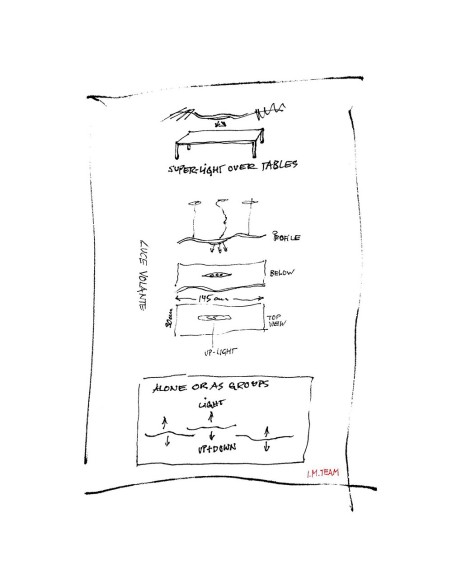 SUPER-LIGHT OVER TABLES
PROFILE
LUCE VOLANTE
BELOW
145 cm
TOP
VIEW
UP-LIGHT
ALONE OR AS GROUPS
LIGHT
UP+DOWN
I.M.TEAM